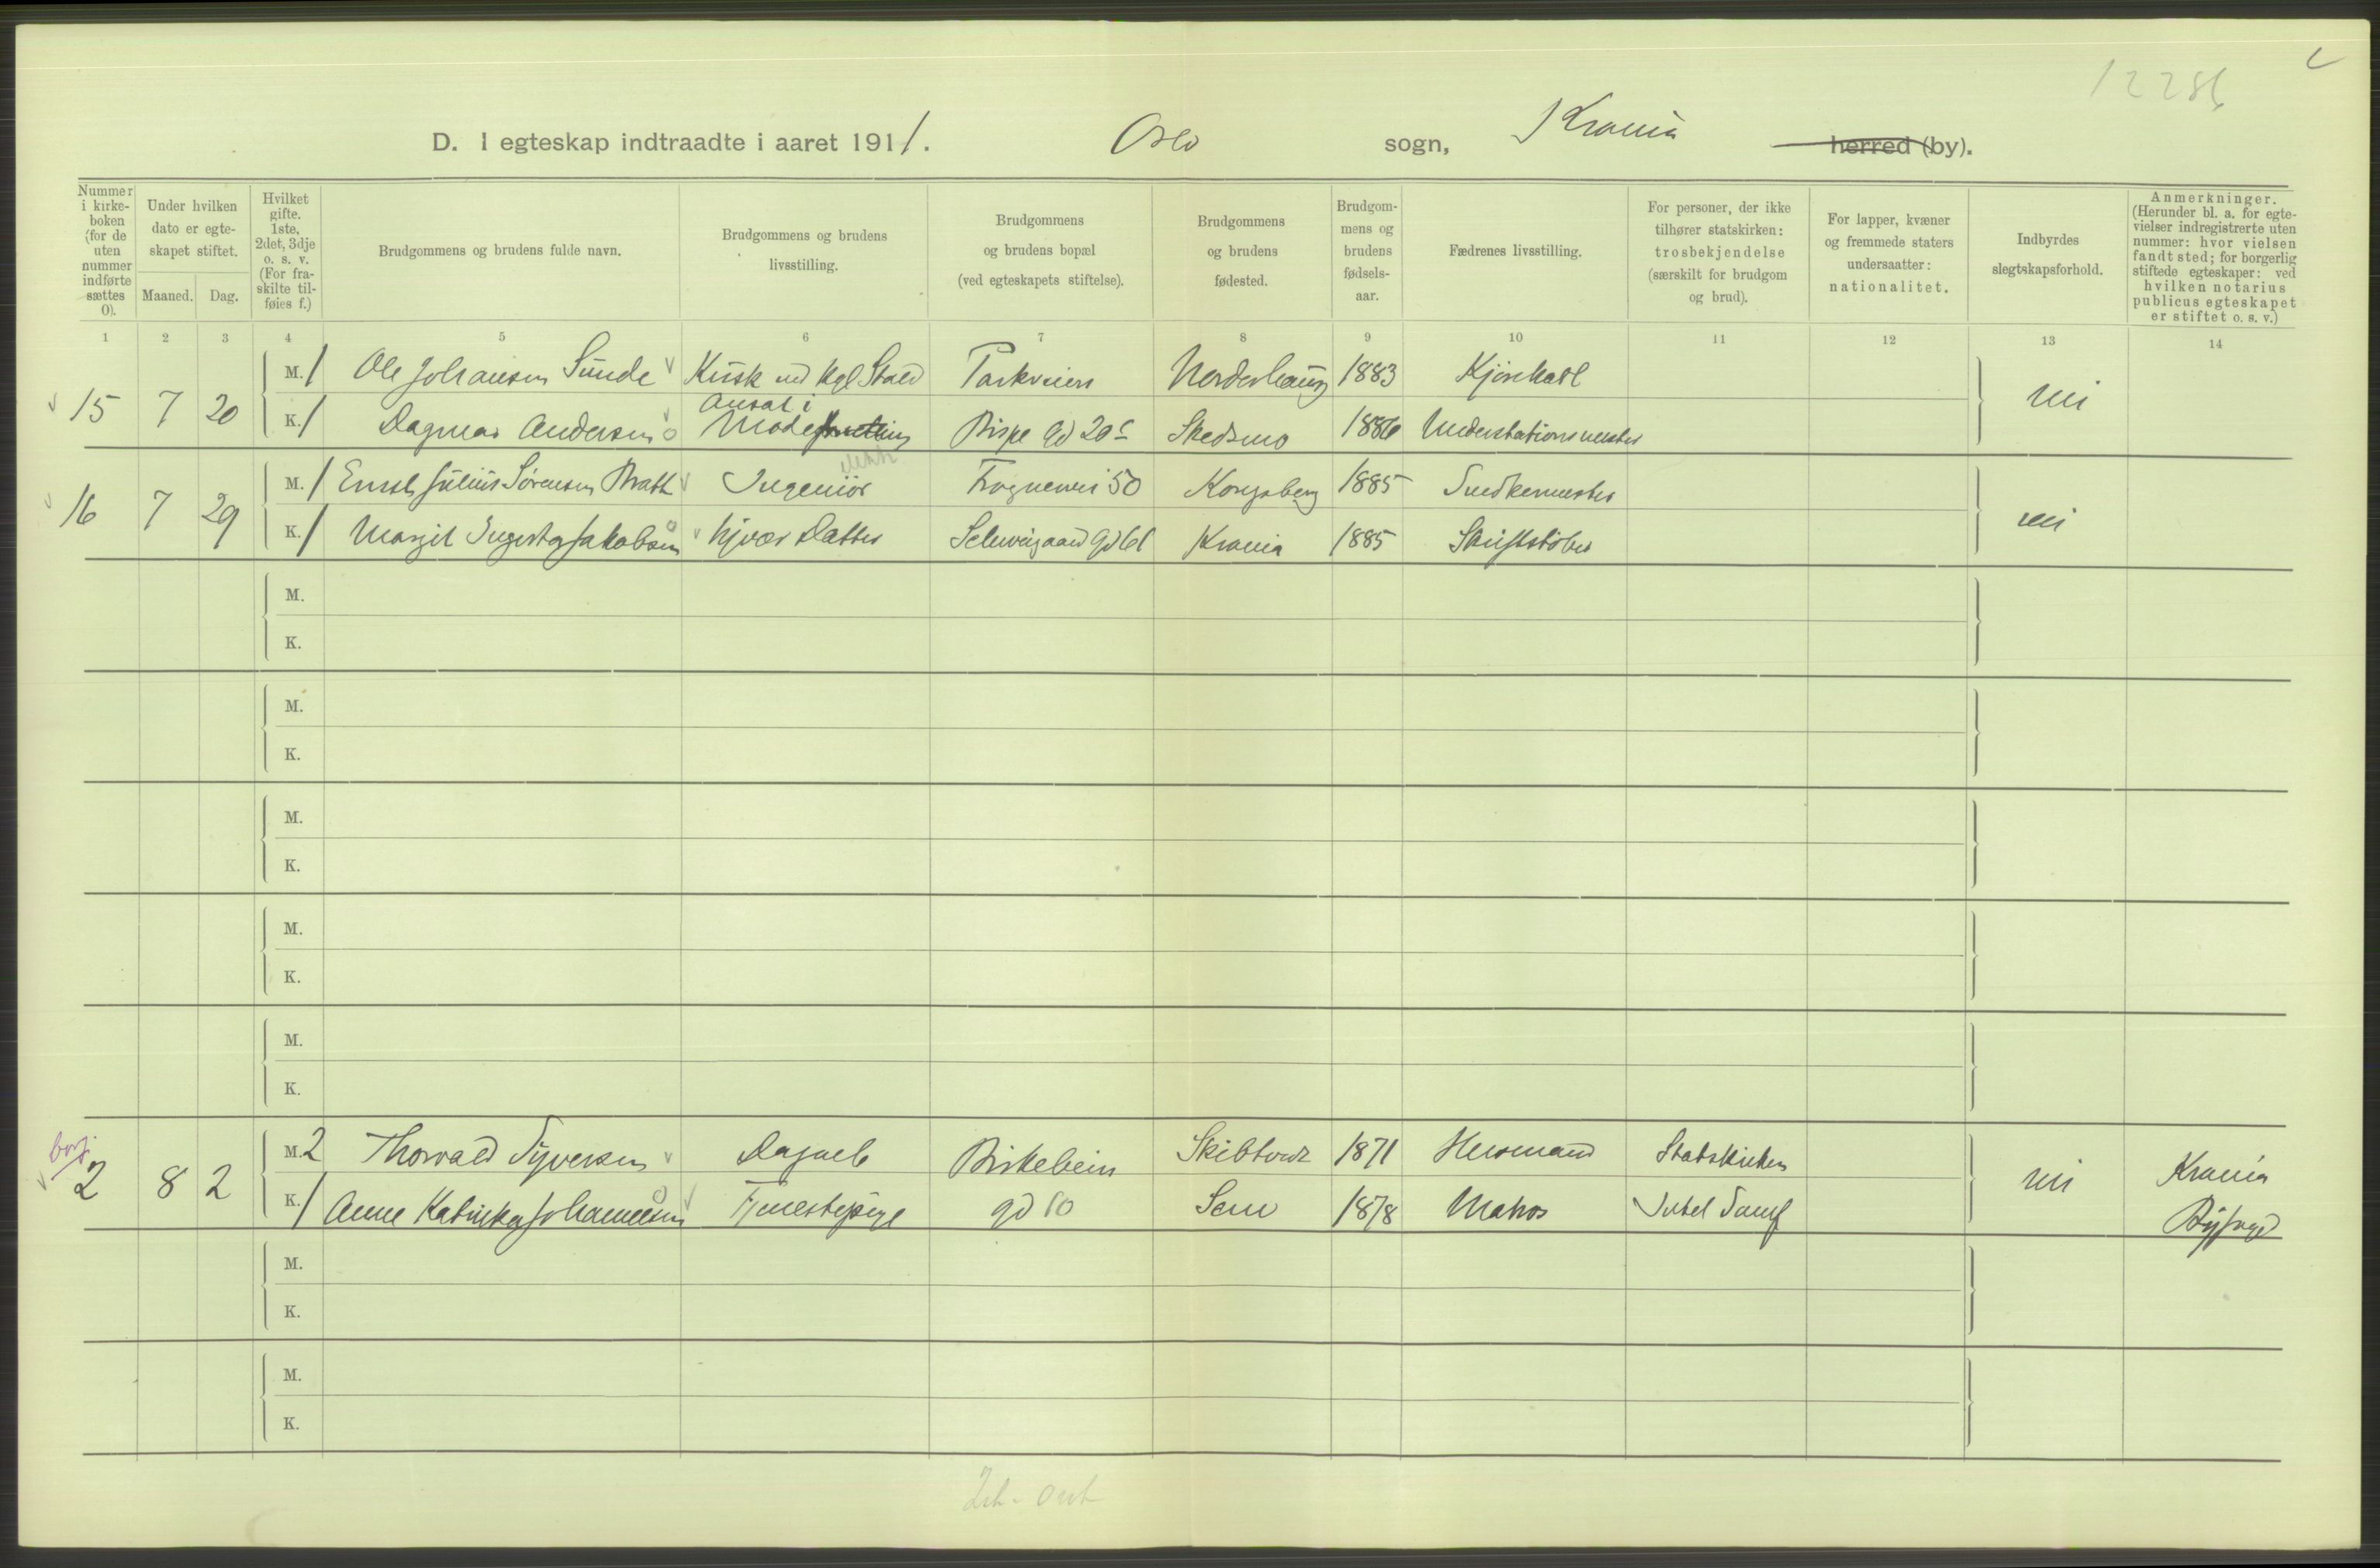 12286
D. I egteskap indtraadte i aaret 1911. Oslo sogn, Krania herred (by).
Nummer i kirke-boken (for de uten nummer indførte sættes 0).
Under hvilken dato er egte-skapet stiftet.
Maaned. Dag.
Hvilket gifte. 1ste, 2det, 3dje o. s. v. (For fra-skilte til-føies f.)
Brudgommens og brudens fulde navn.
Brudgommens og brudens livsstilling.
Brudgommens og brudens bopæl (ved egteskapets stiftelse).
Brudgommens og brudens fødested.
Brudgom-mens og brudens fødsels-aar.
Fædrenes livsstilling.
For personer, der ikke tilhører statskirken: trosbekjendelse (særskilt for brudgom og brud).
For lapper, kvæner og fremmede staters undersaatter: nationalitet.
Indbyrdes slegtskapsforhold.
Anmerkninger. (Herunder bl. a. for egte-vielser indregistrerte uten nummer: hvor vielsen fandt sted; for borgerlig stiftede egteskaper: ved hvilken notarius publicus egteskapet er stiftet o. s. v.)
1 2 3 4 5 6 7 8 9 10 11 12 13 14
M. 1 Ole Johansen Sunde Kusk ved Kgl Stald Parkveien Norderhaug 1883 Kjørekarl
15 7 20 nei
K. 1 Dagmar Andersen Ansat i Modeforretning Bispe Gd 20c Skedsmo 1886 Understationsmester
M. 1 Ernst Julius Sørensen Brath Ingeniør elektr. Frognervei 50 Kongsberg 1885 Snedkermester
16 7 29 nei
K. 1 Margit Ingertha Jakobsen hjvær Datter Schweigaard Gd 61 Krania 1885 Skriftstøber
M.
K.
M.
K.
M.
K.
M.
K.
M.
K.
borg.
M. 2 Thorvald Syversen Dagarb Birkebein Skibtvedt 1871 Husmand Statskirken Krania
2 8 2 nei
K. 1 Anne Katinka Johannesen Tjenestepige gd 10 Sem 1878 Matros Byfoged
M.
K.
M.
K.